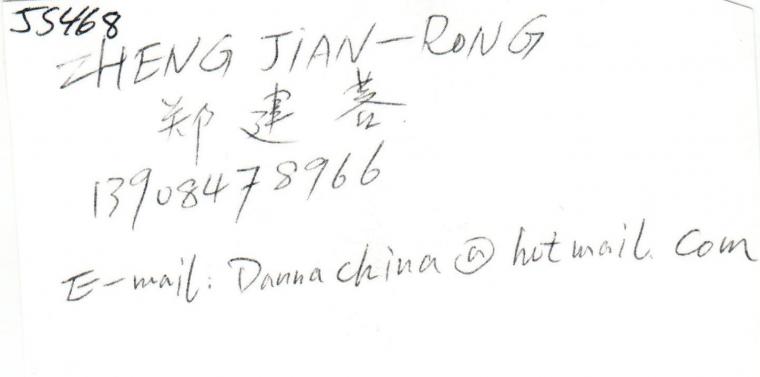 JS468
ZHENG JiAN-RONG
郑建蓉
13908478966
E-mail: Dannachina@hotmail.com